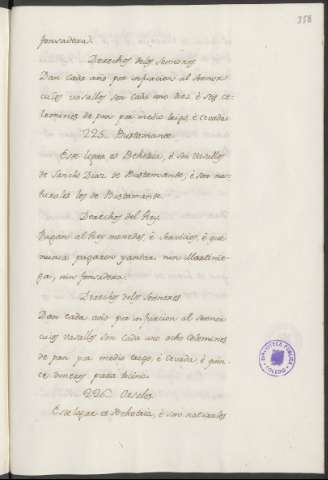 358
fonsadera.
Derechos delos Sennores
Dan cada año por infurcion al Sennor
cuios vasallos son cada uno diez é seis ce-
lemines de pan por medio trigo, é cevada
225. Bustamante.
Este logar es Behetria, é son vasallos
de Sancho Diaz de Bustamante, é son na-
turales los de Bustamante.
Derechos del Rey.
Pagan al Rey monedas, é servicios, é que
nunca pagaron yantar nin martinie-
ga, nin fonsadera.
Derechos delos Sennores
Dan cada año por infurcion al Sennor
cuios vasallos son cada uno ocho celemines
de pan por medio trigo, é cevada, é quin-
ce dineros para tocino.
226
Este logar es Behetria, é son naturales
BIBLIOTECA PÚBLICA
TOLEDO